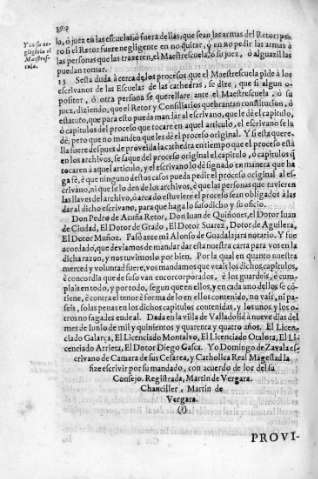 Y en su ne-
gligẽcia el
Maestres-
cuela.
lo, ó juez en las escuelas, ò fuera dellas, que sean las armas del Retor: pe-
ro si el Retor fuere negligente en no quitar, ò en no pedir las armas à
las personas que las traxeren, el Maestrescuela, ò su juez, ò alguazil las
puedan tomar.
15 Si està duda à cerca de los procesos que el Maestrescuela pide à los
escrivanos de las Escuelas de las cathedras, se dize, que si algun o-
positor, ò otra persona se querellare ante el Maestrescuela, ò su
juez, diziendo, que el Retor y Consiliarios quebrantan constitucion, ò
estatuto, que para esto pueda mandar al escrivano, que le dè el capitulo,
ò capitulos del proceso que tocare en aquel articulo, el escrivano se la
dè; pero que no mandeu que les dè el proceso original. Y si esta quere-
lla fuere despues de proveida la cathedra en tiempo que el proceso està
en los archivos, se saque del proceso original el capitulo, ò capitulos q̃
tocaren à aquel articulo, y el escrivano lo dè signado en manera que ha
ga fè, è que ninguno destos casos pueda pedir el proceso original al es-
crivano, ni que se lo den de los archivos, è que las personas que tuvieren
las llaves del archivo, donde estuviere el proceso sean obligados à las
dar al dicho escrivano, para que haga lo suso dicho y su oficio.
Don Pedro de Acuña Retor, Don Iuan de Quiñones, el Dotor Iuan
de Ciudad, El Dotor de Grado, El Dotor Suarez, Dotor de Aguilera,
El Dotor Muñoz. Pasò ante mi Alonso de Guadalajara notario. Y fue
acordado, que deviamos de mandar dar esta nuestra carta para vos en la
dicha razon, y nos tuvimoslo por bien. Por la qual en quanto nuestra
merced y voluntad fuere, vos mandamos que veais los dichos capitulos,
è concordia que de suso van encorporados, è los guardeis, è cum-
plais en todo, y por todo, segun que en ellos, y en cada uno dellos se cõ-
tiene, è contra el tenor è forma de lo en ellos contenido, no vais, ni pa-
seis, so las penas en los dichos capitulos contenidas, y los unos y los o-
tros no fagades ende al. Dada en la villa de Valladolid à nueve dias del
mes de Iunio de mil y quinientos y quarenta y quatro años. El Licen-
ciado Galarca, El Licenciado Montalvo, El Licenciado Otalora, El Li-
cenciado Arrieta, El Dotor Diego Gasca. Yo Domingo de Zavala es-
crivano de Camara de sus Cesarea, y Catholica Real Magestad la
fize escrivir por su mandado, con acuerdo de los del su
Consejo. Registrada, Martin de Vergara.
Chanciller, Martin de
Vergara.
PROVI-